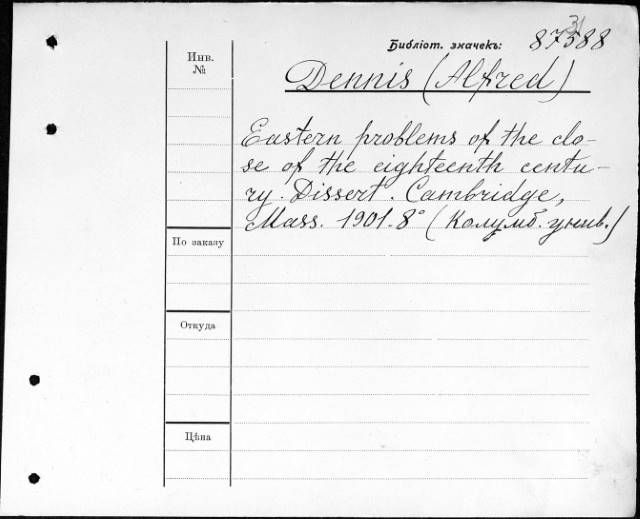 Библіот. значекъ: 87588
31
Инв.
№
Dennis (Alfred)
Eastern problems of the clo-
se of the eighteenth centu-
ry. Dissert. Cambridge,
Mass. 1901. 8° (Колумб. унив.)
По заказу
Откуда
Цѣна